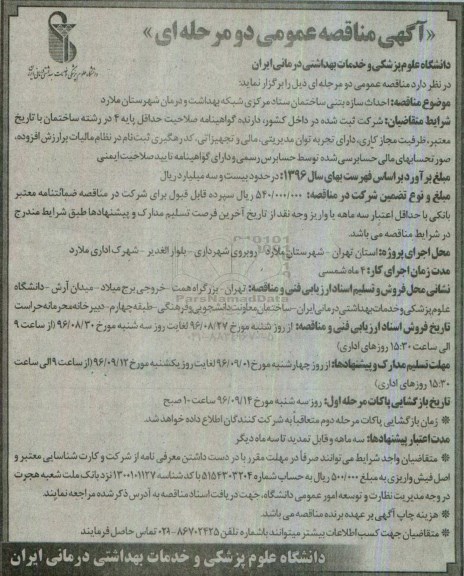 «آگهی مناقصه عمومی دو مرحله ای»
دانشگاه علوم پزشکی و خدمات بهداشتی درمانی ایران
در نظر دارد مناقصه عمومی دو مرحله ای ذیل را برگزار نماید:
موضوع مناقصه: احداث سازه بتنی ساختمان ستاد مرکزی شبکه بهداشت و درمان شهرستان ملارد
شرایط متقاضیان: شرکت ثبت شده در داخل کشور، دارنده گواهینامه صلاحیت حداقل پایه ۴ در رشته ساختمان با تاریخ
معتبر، ظرفیت مجاز کاری، دارای تجربه توان مدیریتی، مالی و تجهیزاتی، کد رهگیری ثبت نام در نظام مالیات بر ارزش افزوده،
صورتحسابهای مالی حسابرسی شده توسط حسابرس رسمی و دارای گواهینامه تایید صلاحیت ایمنی
مبلغ برآورد بر اساس فهرست بهای سال ۱۳۹۶: در حدود بیست و سه میلیارد ریال
مبلغ و نوع تضمین شرکت در مناقصه: ۵۴۰/۰۰۰/۰۰۰ ریال سپرده قابل قبول برای شرکت در مناقصه ضمانتنامه معتبر
بانکی با حداقل اعتبار سه ماهه یا واریز وجه نقد از تاریخ آخرین فرصت تسلیم مدارک و پیشنهادها طبق شرایط مندرج
در شرایط مناقصه می باشد.
محل اجرای پروژه: استان تهران - شهرستان ملارد - روبروی شهرداری - بلوار الغدیر - شهرک اداری ملارد
مدت زمان اجرای کار: ۴ ماه شمسی
نشانی محل فروش و تسلیم اسناد ارزیابی فنی و مناقصه: تهران - بزرگراه همت - خروجی برج میلاد - میدان آرش - دانشگاه
علوم پزشکی و خدمات بهداشتی درمانی ایران - ساختمان معاونت دانشجویی و فرهنگی - طبقه چهارم - دبیرخانه محرمانه حراست
تاریخ فروش اسناد ارزیابی فنی و مناقصه: از روز شنبه مورخ ۹۶/۰۸/۲۷ لغایت روز سه شنبه مورخ ۹۶/۰۸/۳۰ (از ساعت ۹
الی ساعت ۱۵:۳۰ روزهای اداری)
مهلت تسلیم مدارک و پیشنهادها: از روز چهارشنبه مورخ ۹۶/۰۹/۰۱ لغایت روز یکشنبه مورخ ۹۶/۰۹/۱۲ (از ساعت ۹ الی ساعت
۱۵:۳۰ روزهای اداری)
تاریخ بازگشایی پاکات مرحله اول: روز سه شنبه مورخ ۹۶/۰۹/۱۴ ساعت ۱۰ صبح
* زمان بازگشایی پاکات مرحله دوم متعاقباً به شرکت کنندگان اطلاع داده خواهد شد.
مدت اعتبار پیشنهادها: سه ماهه و قابل تمدید تا سه ماه دیگر
* متقاضیان واجد شرایط می توانند صرفاً در مهلت مقرر با در دست داشتن معرفی نامه از شرکت و کارت شناسایی معتبر و
اصل فیش واریزی به مبلغ ۵۰۰/۰۰۰ ریال به حساب شماره ۵۱۵۴۳۰۳۲۰۴ با کد شناسه ۱۳۰۰۱۰۱۱۲۷ نزد بانک ملت شعبه هجرت
در وجه مدیریت نظارت و توسعه امور عمومی دانشگاه، جهت دریافت اسناد مناقصه به آدرس ذکر شده مراجعه نمایند
* هزینه چاپ آگهی بر عهده برنده مناقصه می باشد.
* متقاضیان جهت کسب اطلاعات بیشتر میتوانند با شماره تلفن ۸۶۷۰۲۴۲۵-۰۲۱ تماس حاصل فرمایند
دانشگاه علوم پزشکی و خدمات بهداشتی درمانی ایران